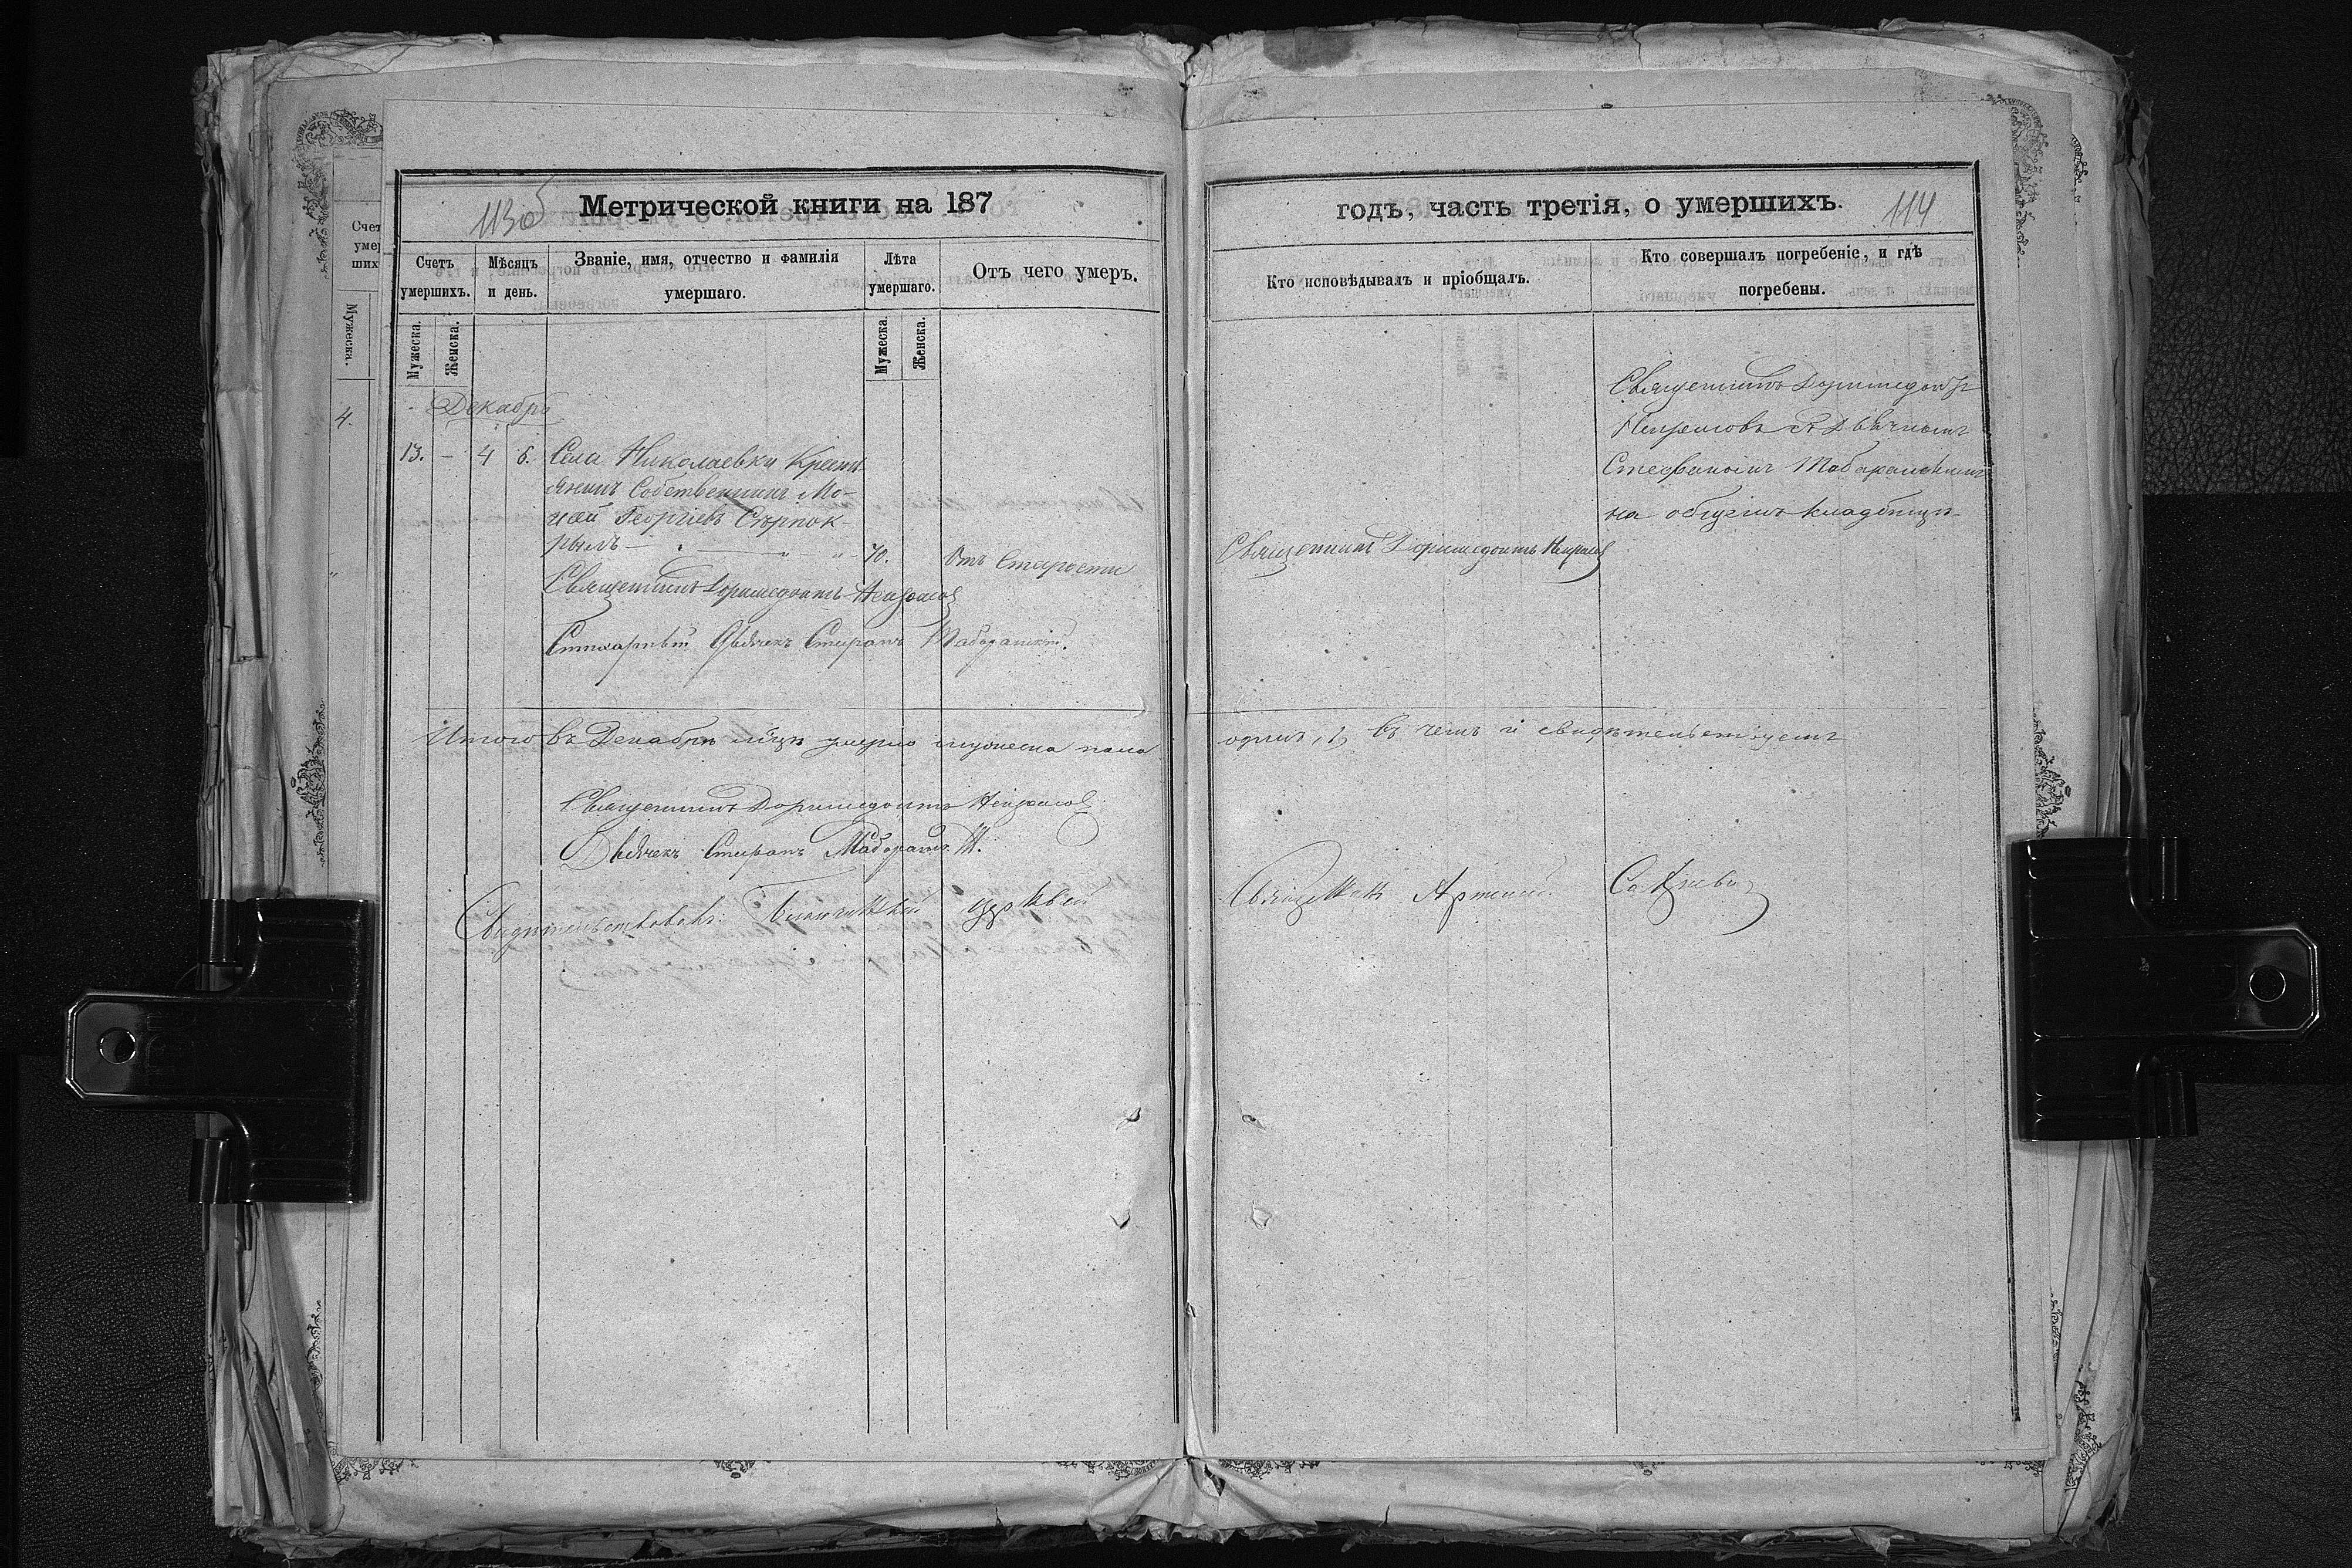 113об
Метрической книги на 187
Счетъ умершихъ.
Мѣсяцъ и день.
Званіе, имя, отчество и фамилія умершаго.
Лѣта умершаго.
Отъ чего умеръ.
Мужеска.
Женска.
Мужеска.
Женска.
Декабрь
13. — 4 6. Села Николаевки Кресть
янинъ Собственникъ Мо-
Георгіевъ
70. Отъ Старости
Священникъ Доримедонтъ Некрасов
Стихарный Дьячекъ Стефанъ
Итого въ Декабрѣ м-цѣ умерло мужеска пола
Священникъ Доримедонтъ Некрасов
Дьячекъ Стефанъ
Свидѣтельствовалъ: церквей
годъ, часть третія, о умершихъ.
114
Кто исповѣдывалъ и пріобщалъ.
Кто совершалъ погребеніе, и гдѣ погребены.
Священникъ Доримедонтъ
Некрасовъ съ Дьячкомъ
Стефаномъ
на общемъ кладбищѣ
Священникъ Доримедонтъ Некрасов
одинъ, 1, въ чемъ и свидѣтельствуемъ
Священникъ
Счет
умер
ших
Мужеска.
4.